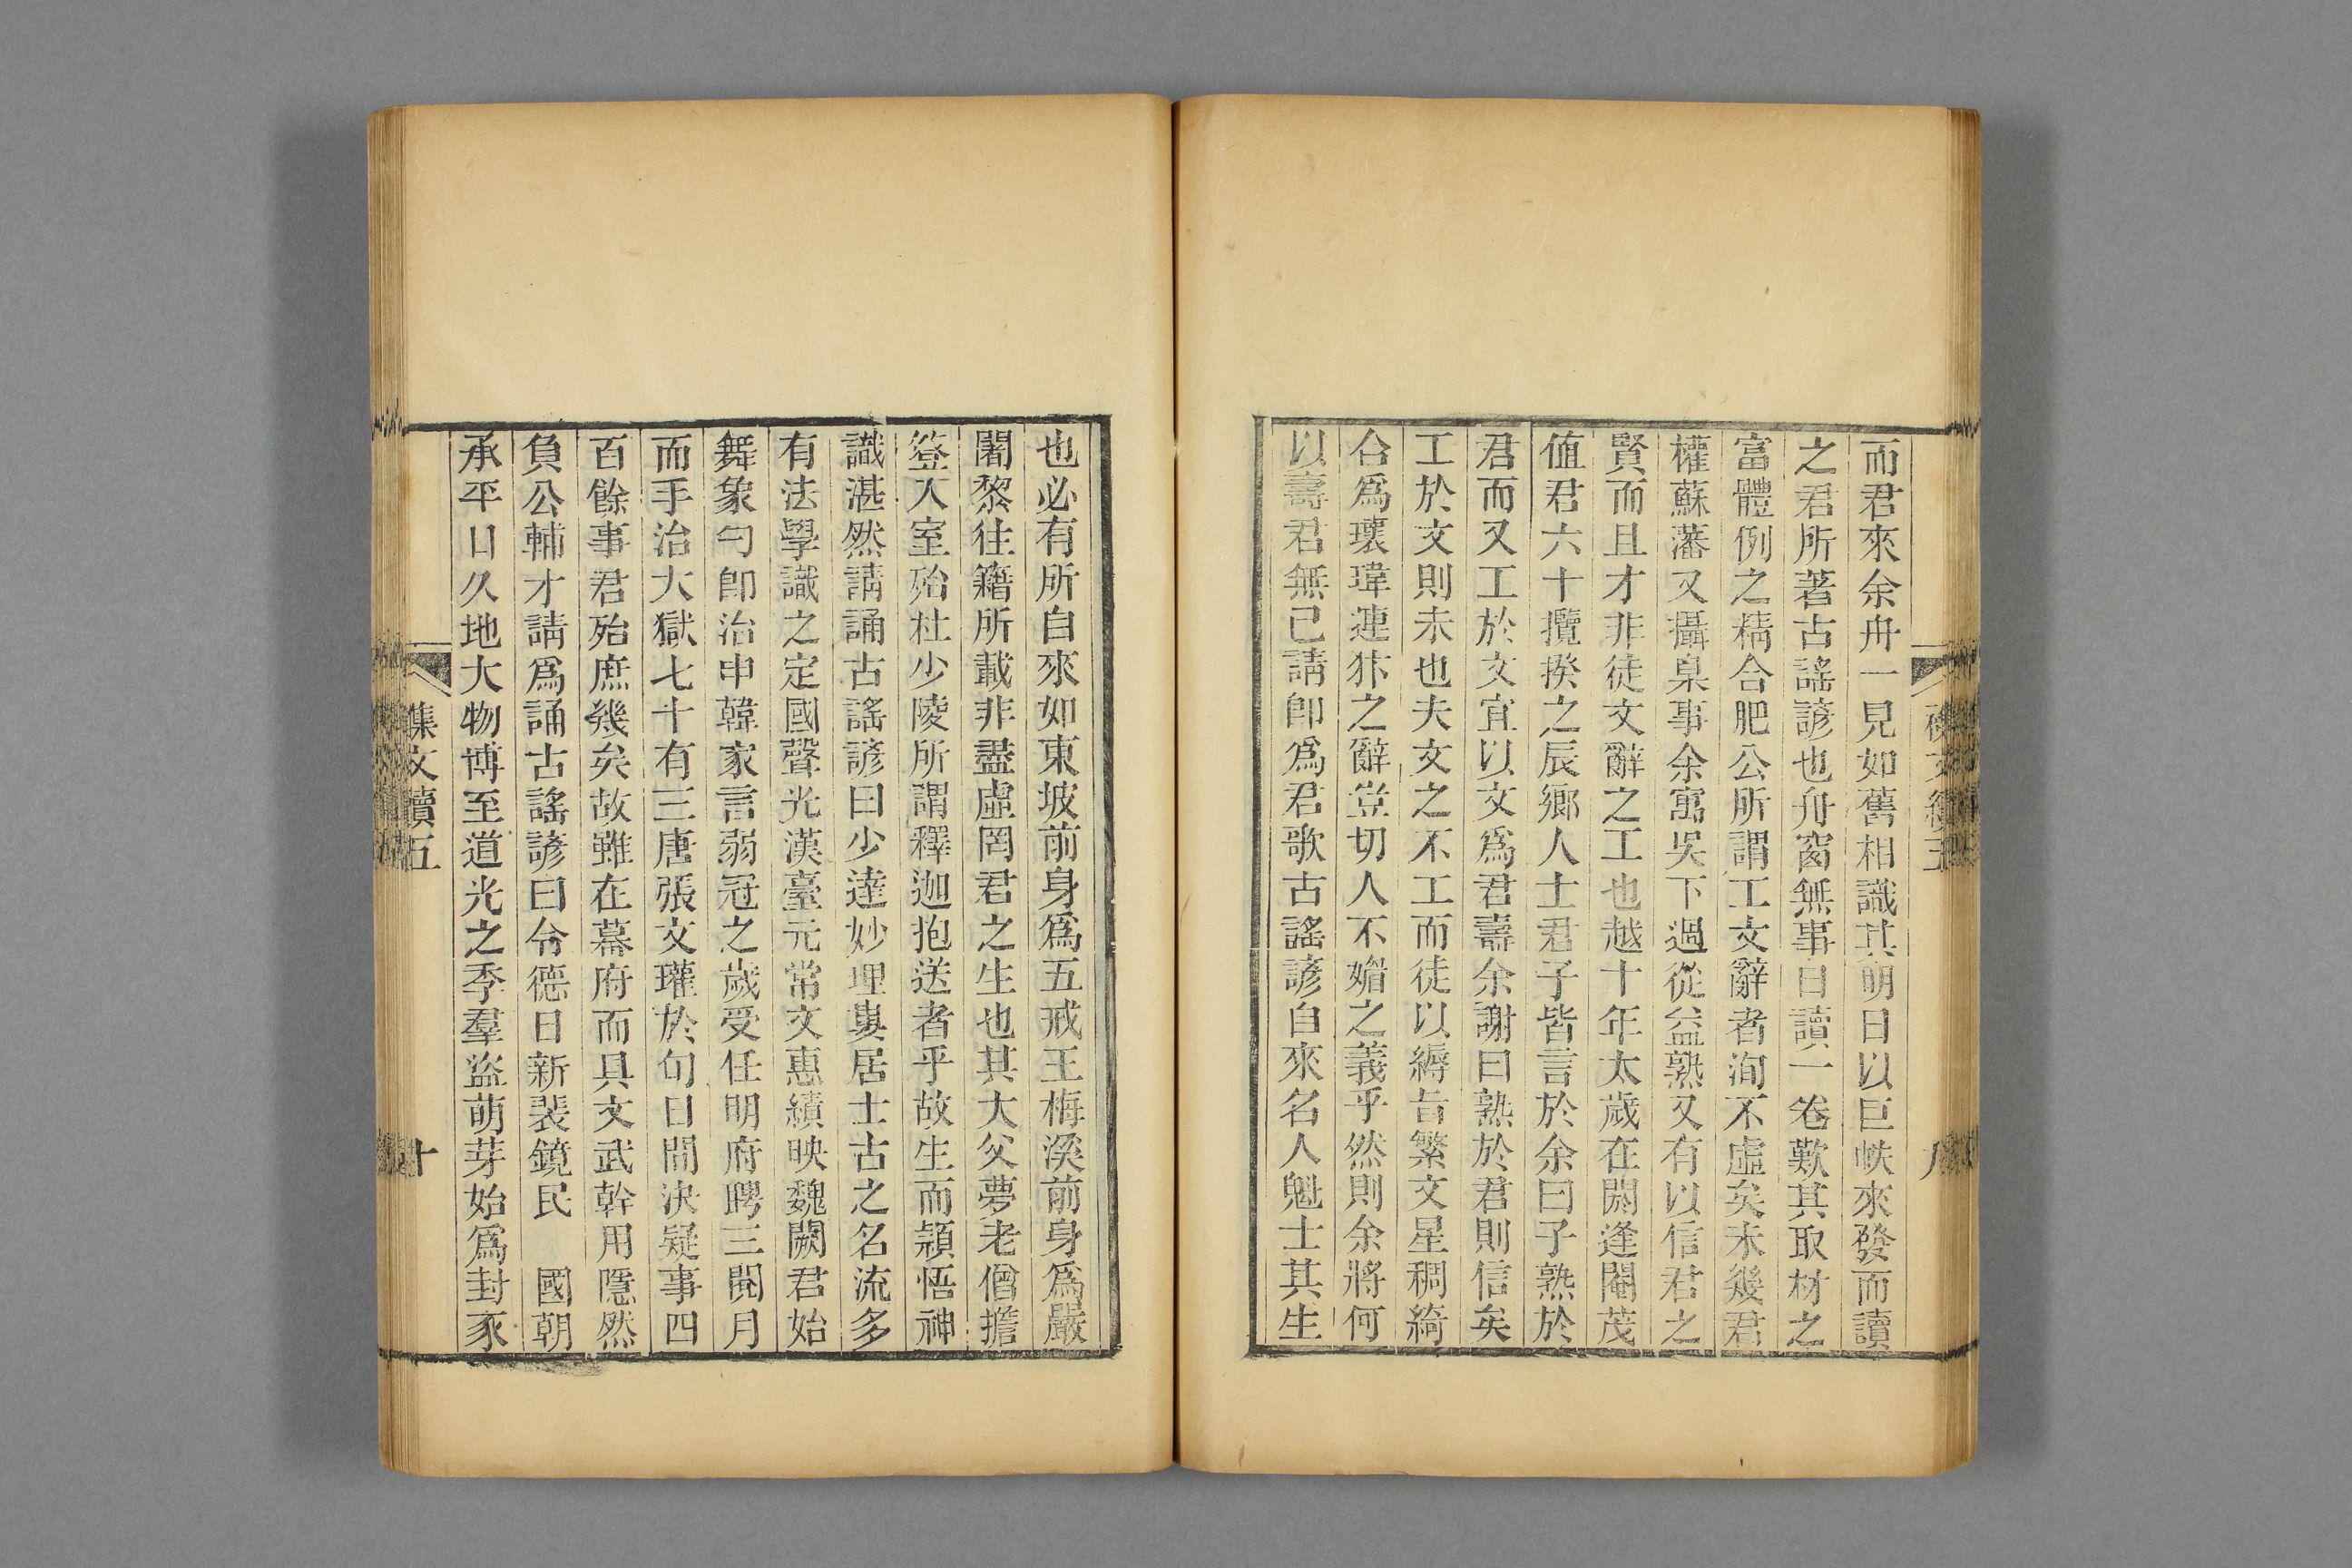 而君來余舟一見如舊相識其明日以巨峡來發而讀
之君所著古謠諺也舟窗無事日讀一卷歎其取材之
富體例之精合肥公所謂工文辭者洵不虛矣未幾君
權蘇藩又攝臬事余寓吳下過從益熟又有以信君之
賢而且才非徒文辭之工也越十年太歲在閼逢閹茂
値君六十攬揆之辰鄉人士君子皆言於余曰子熟於
君而又工於文宜以文爲君壽余謝曰熟於君則信矣
工於文則未也夫文之不工而徒以縟旨繁文星稠綺
合爲瓌瑋連犿之辭豈切人不媚之義乎然則余將何
以壽君無已請卽爲君歌古謠諺自來名人魁士其生
也必有所自來如東坡前身爲五戒王梅溪前身爲嚴
闍黎往籍所載非盡虛罔君之生也其大父夢老僧擔
簦入室殆杜少陵所謂釋迦抱送者乎故生而頴悟神
識湛然請誦古謠諺曰少達妙理婁居士古之名流多
有法學識之定國聲光漢臺元常文惠績映魏闕君始
舞象勺卽治申韓家言弱冠之歲受任明府聘三閱月
而手治大獄七十有三唐張文瓘於旬日間決疑事四
百餘事君殆庶幾矣故雖在幕府而具文武幹用隱然
負公輔才請爲誦古謠諺曰令德日新裴鏡民 國朝
承平日久地大物博至道光之季羣盜萌芽始爲封豕
集文續五
十